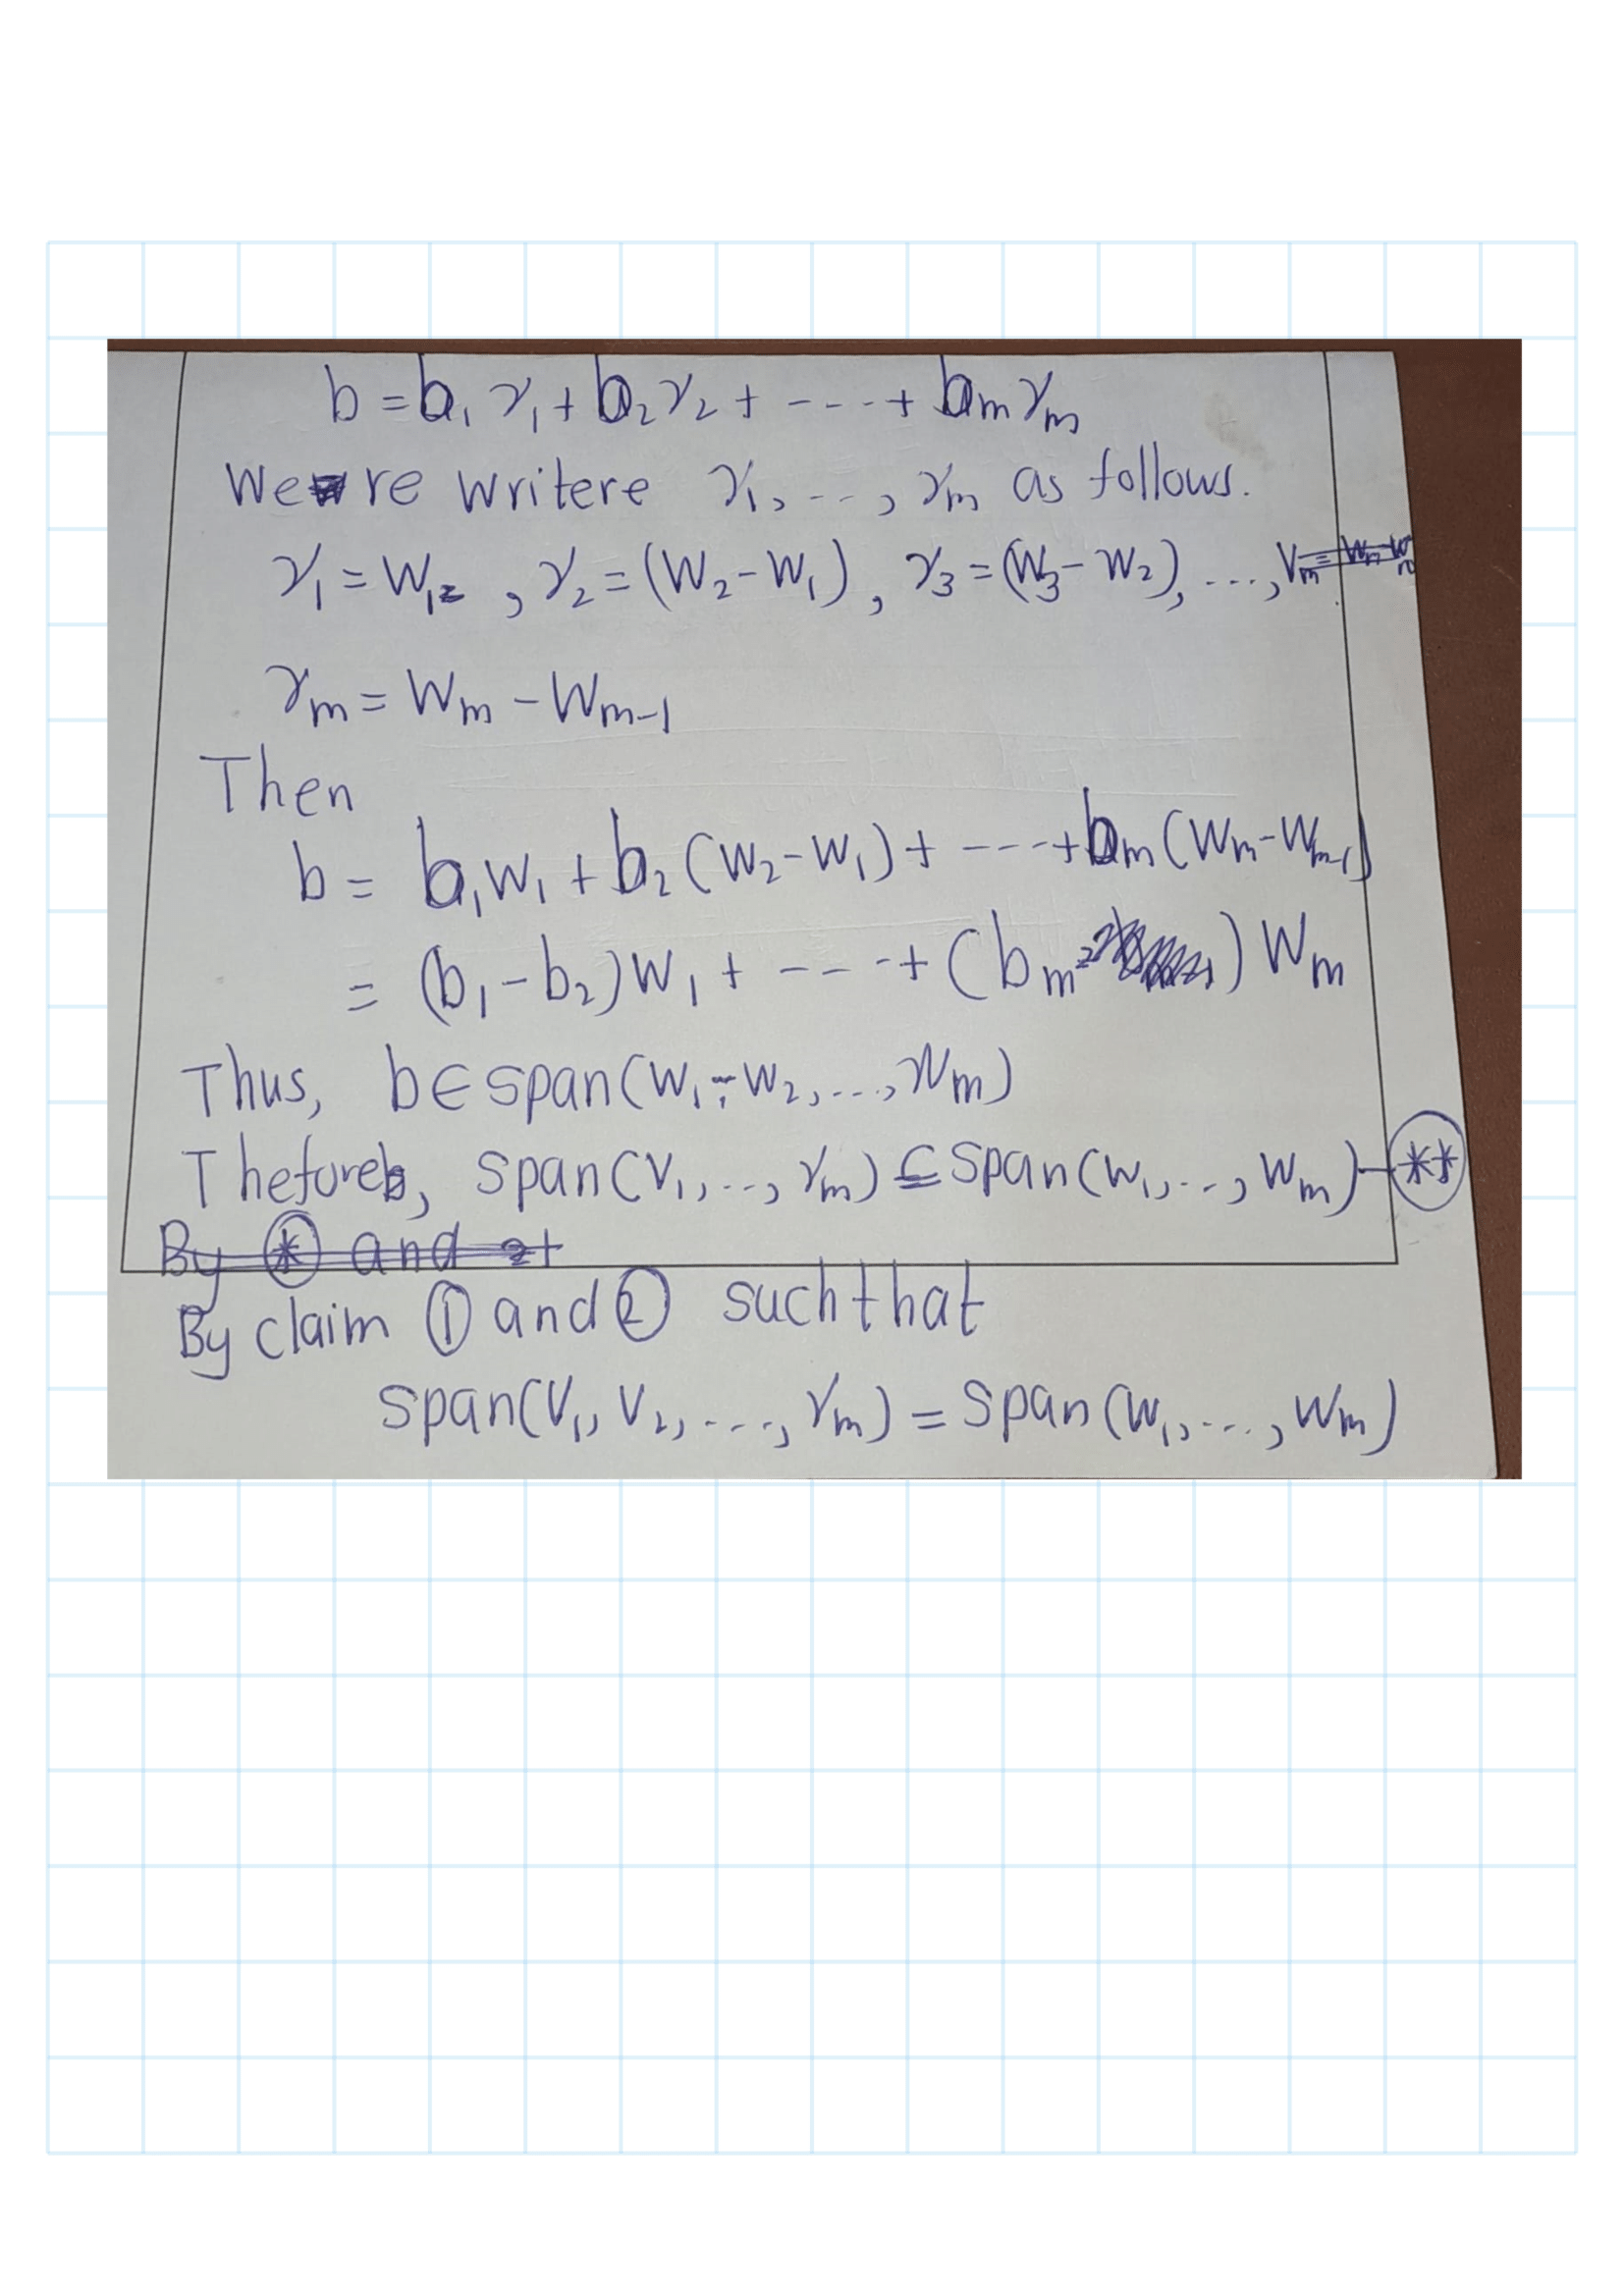 b = b₁ v₁ + b₂ v₂ + ---- + bm vm
We re writere v₁, ..., vm as follows.
v₁ = w₁, v₂ = (w₂ - w₁), v₃ = (w₃ - w₂), ..., vm = wm - w
vm = wm - wm-1
Then
b = b₁w₁ + b₂(w₂ - w₁) + ---- + bm(wm - wm-1)
= (b₁ - b₂)w₁ + ---- + (bm) wm
Thus, b ∈ span(w₁, w₂, ..., wm)
Thefore, span(v₁, ..., vm) ⊆ span(w₁, ..., wm) - **
By * and
By claim ① and ② such that
span(v₁, v₂, ..., vm) = span(w₁, ..., wm)